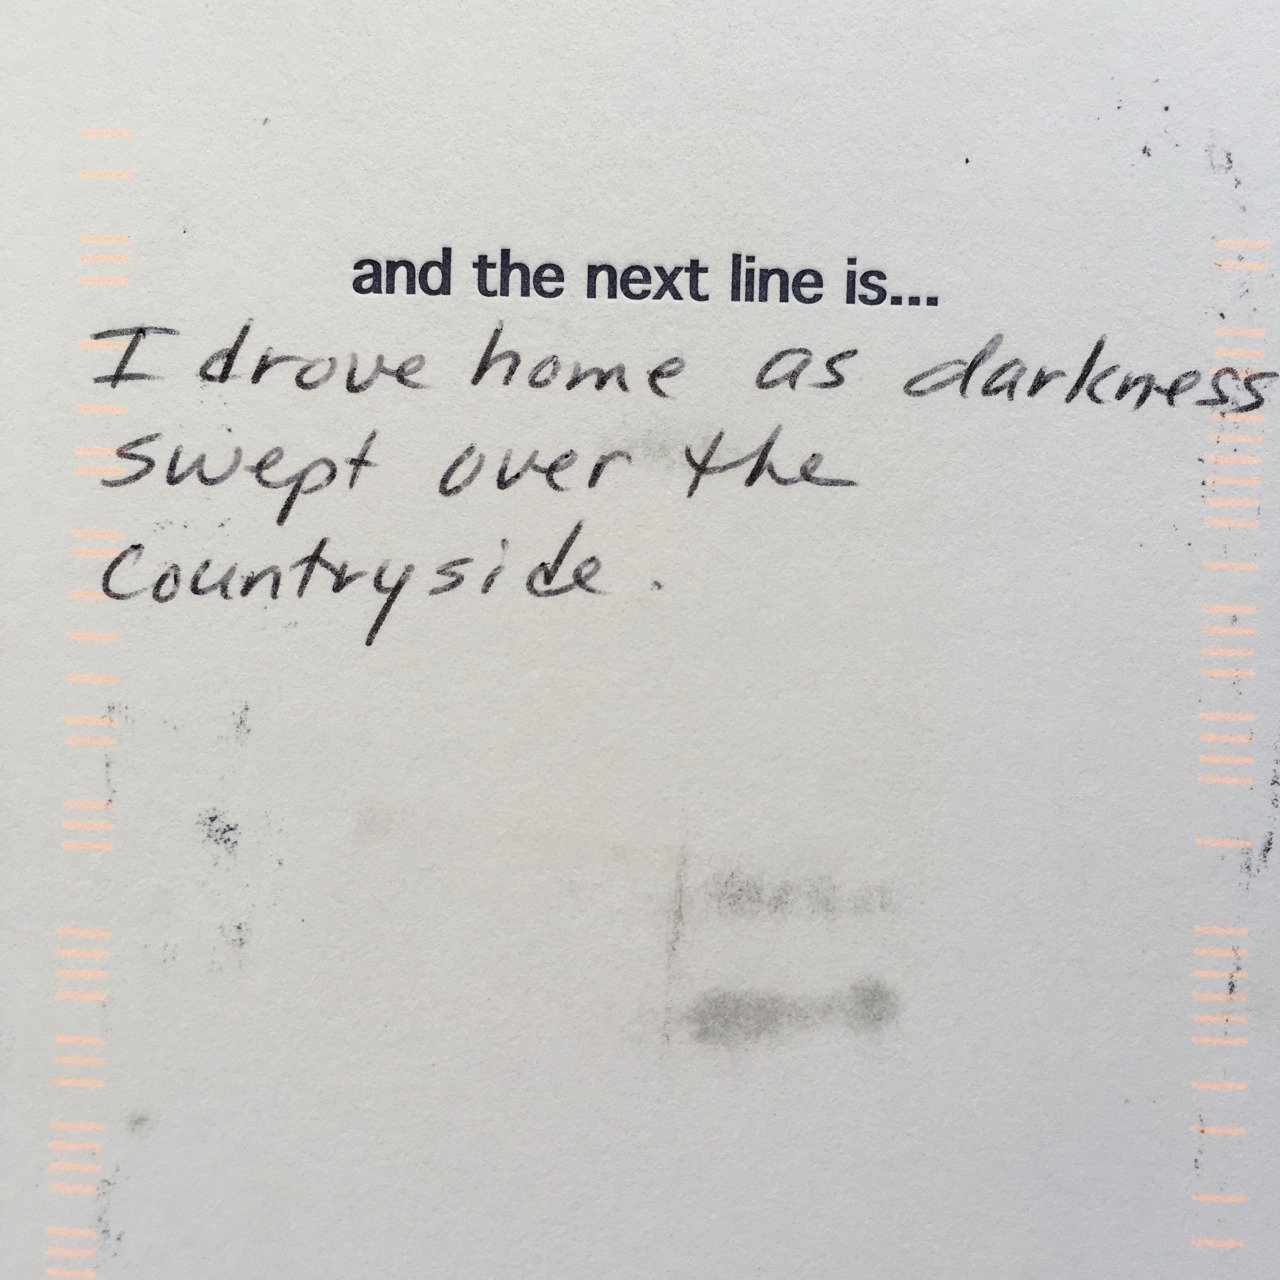 and the next line is...
I drove home as darkness
swept over the
Countryside.